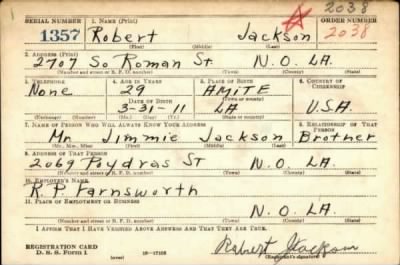 2038
SERIAL NUMBER 1. NAME (Print) ORDER NUMBER
1357 Robert Jackson 2038
(First) (Middle) (Last)
2. ADDRESS (Print)
2707 So Roman St. N.O. LA.
(Number and street or R. F. D. number) (Town) (County) (State)
3. TELEPHONE 4. AGE IN YEARS 5. PLACE OF BIRTH 6. COUNTRY OF CITIZENSHIP
None 29 AMITE
DATE OF BIRTH (Town or county)
3-31-11 LA U.S.A.
(Mo.) (Day) (Yr.) (State or country)
7. NAME OF PERSON WHO WILL ALWAYS KNOW YOUR ADDRESS 8. RELATIONSHIP OF THAT PERSON
Mr. Jimmie Jackson Brother
(Mr., Mrs., Miss) (First) (Middle) (Last)
9. ADDRESS OF THAT PERSON
2069 Poydras St N.O. LA.
(Number and street or R. F. D. number) (Town) (County) (State)
10. EMPLOYER'S NAME
R.P. Farnsworth
11. PLACE OF EMPLOYMENT OR BUSINESS
N.O. LA.
(Number and street or R. F. D. number) (Town) (County) (State)
I AFFIRM THAT I HAVE VERIFIED ABOVE ANSWERS AND THAT THEY ARE TRUE.
REGISTRATION CARD
D. S. S. Form 1 (over) 16—17105 Robert Jackson
(Registrant's signature)